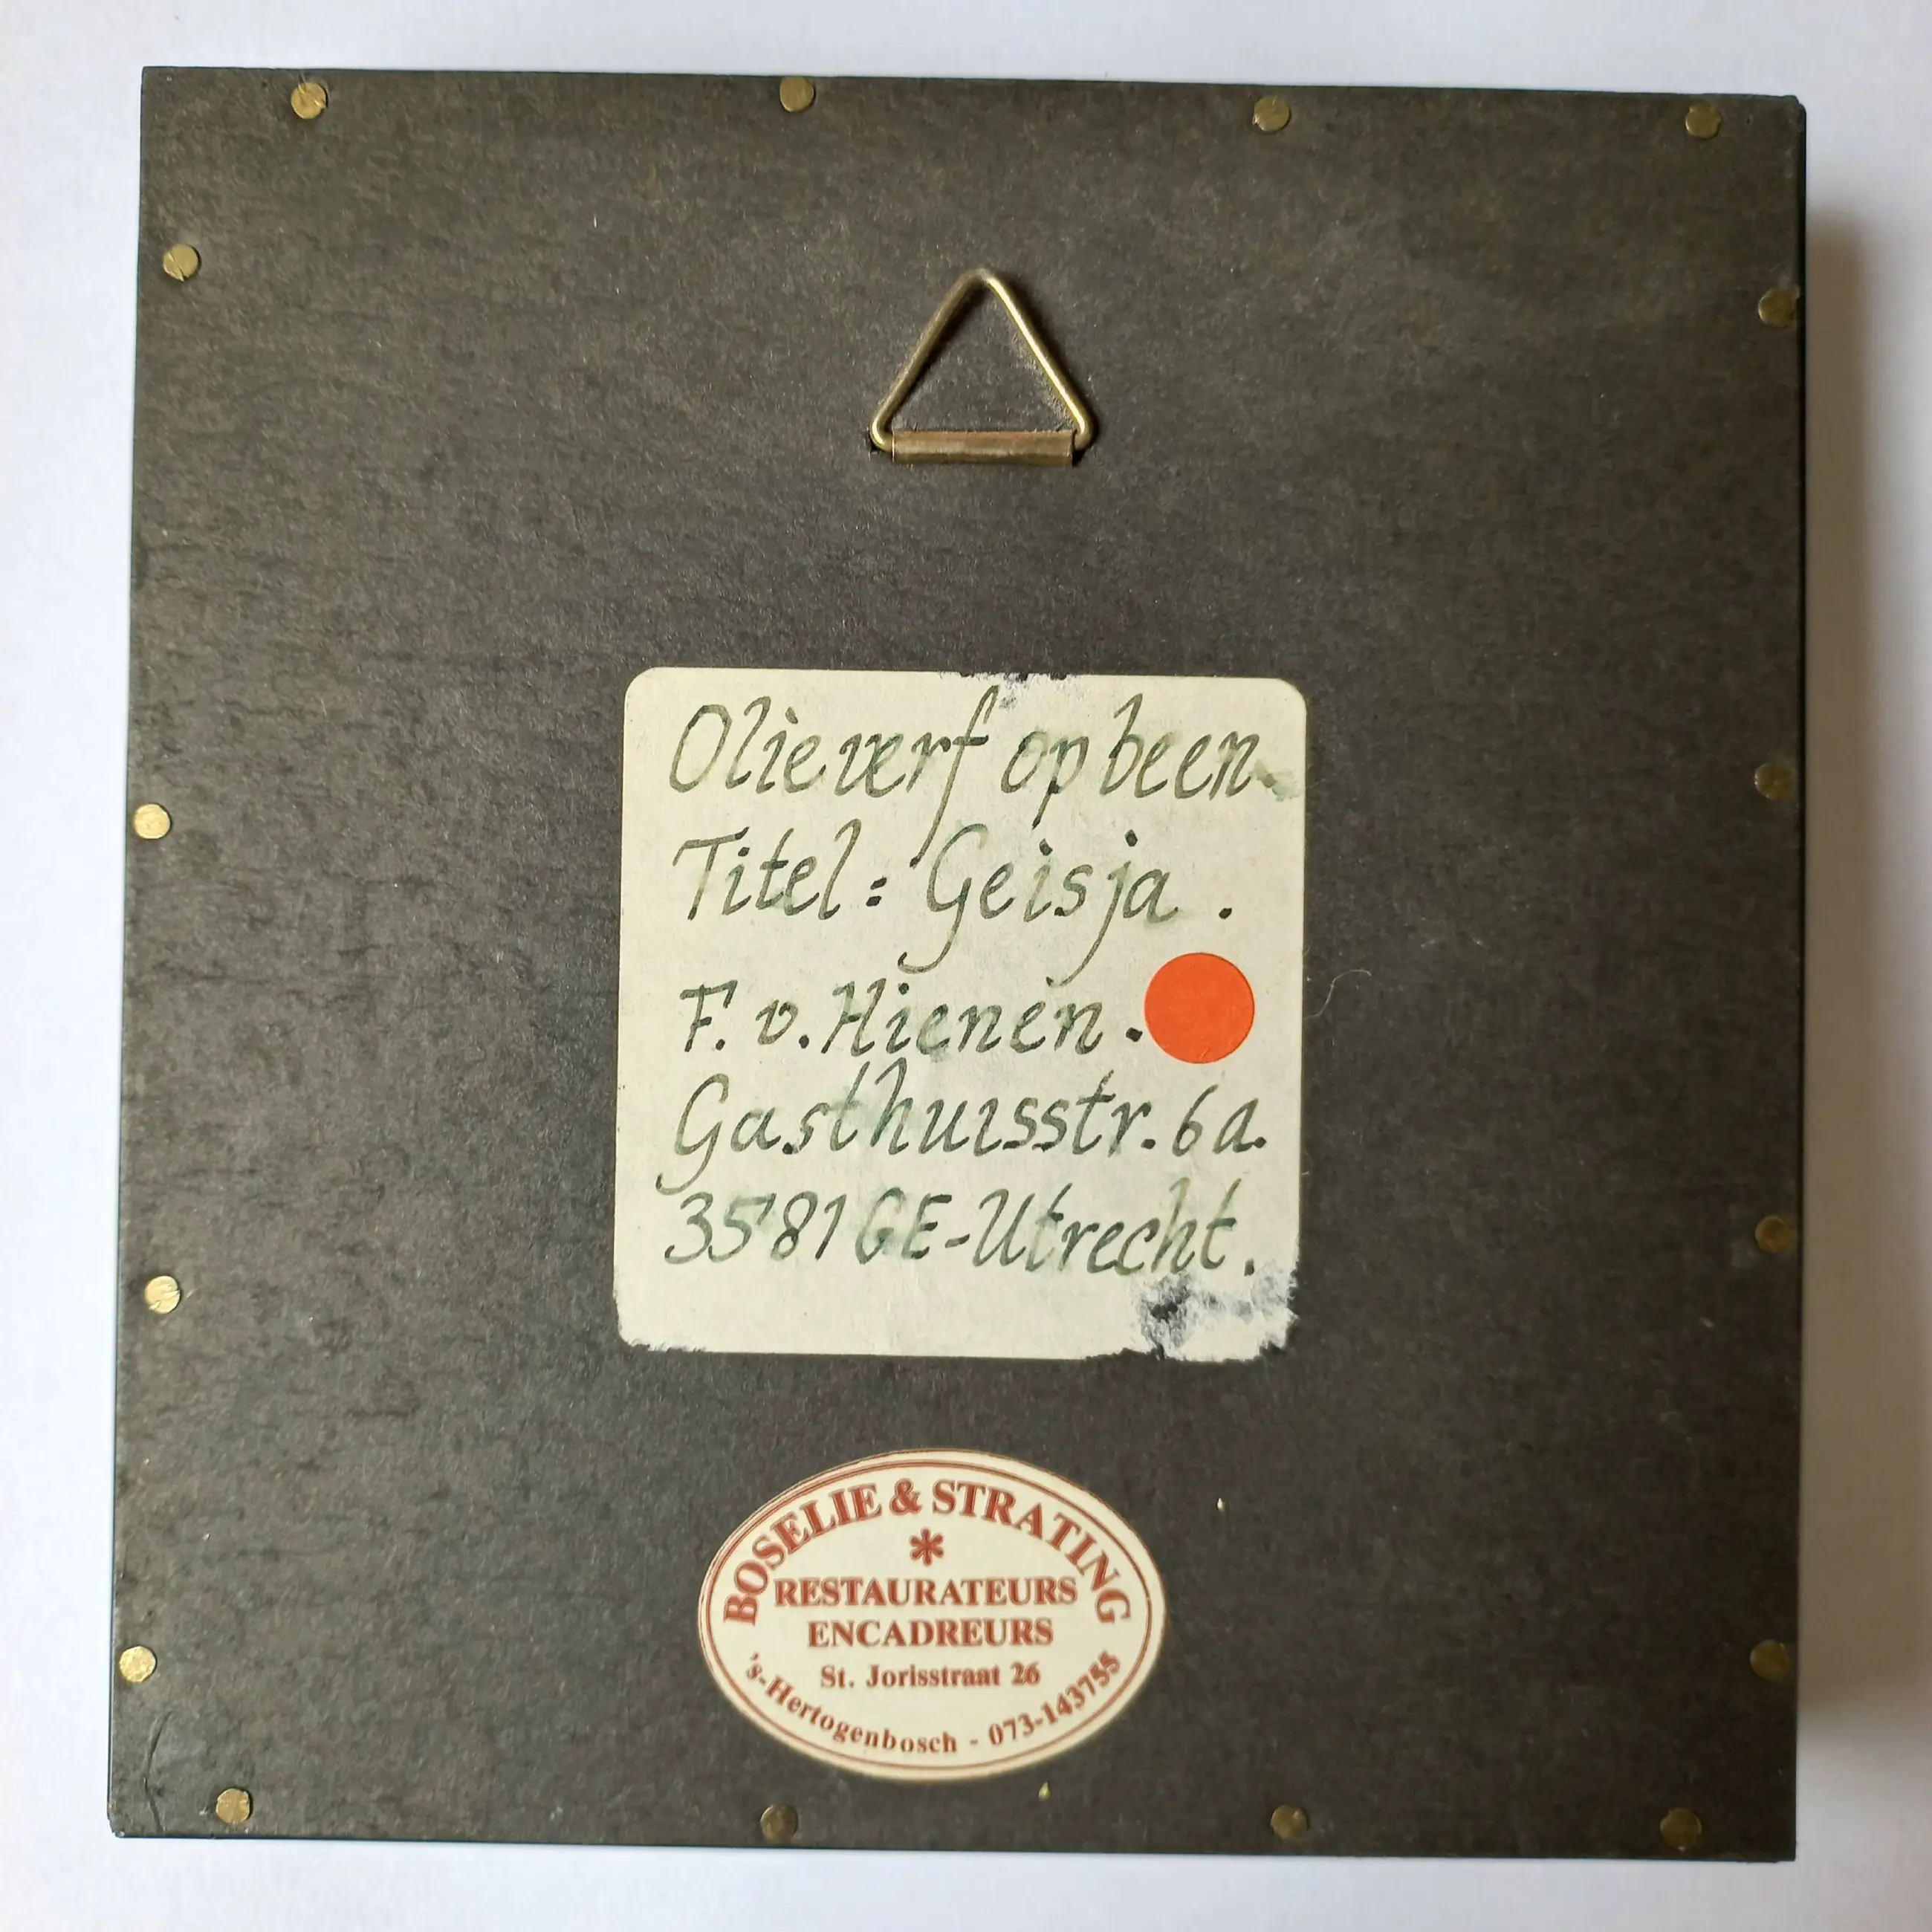 Olieverf op been.
Titel: Geisja.
F. v. Hienen.
Gasthuisstr. 6a.
3581 GE - Utrecht.
BOSELIE & STRATING
*
RESTAURATEURS
ENCADREURS
St. Jorisstraat 26
's-Hertogenbosch - 073-143755